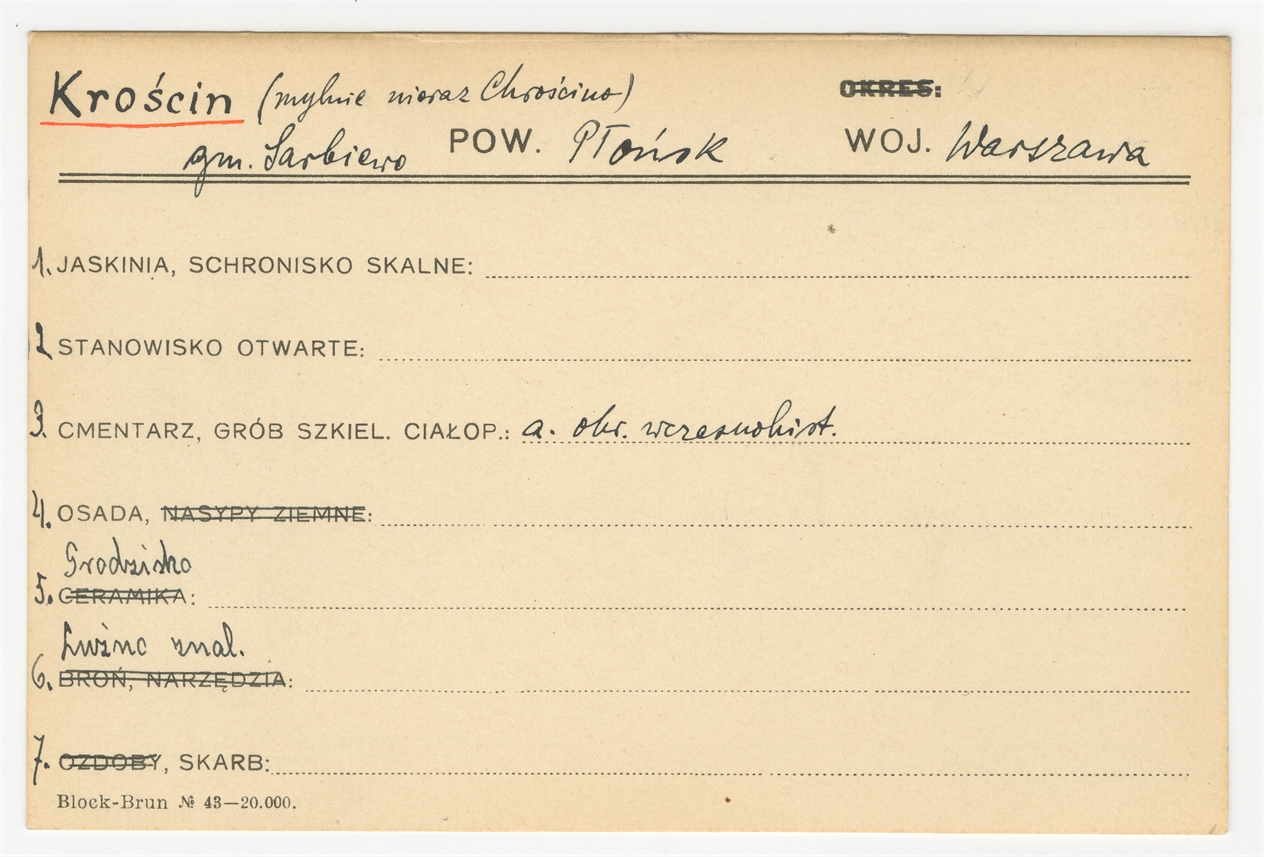 Krościn (mylnie nieraz Chrościno) OKRES:
gm. Sarbiewo POW. Płońsk WOJ. Warszawa
1. JASKINIA, SCHRONISKO SKALNE:
2 STANOWISKO OTWARTE:
3. CMENTARZ, GRÓB SZKIEL. CIAŁOP.: a. obr. wczesnohist.
4. OSADA, NASYPY ZIEMNE:
Grodzisko
5. CERAMIKA:
Luźne znal.
6. BROŃ, NARZĘDZIA:
7. OZDOBY, SKARB:
Block-Brun № 43—20.000.